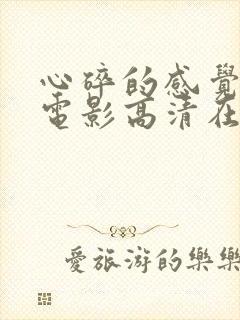 心碎的感覺
電影高清在
愛旅游的樂樂